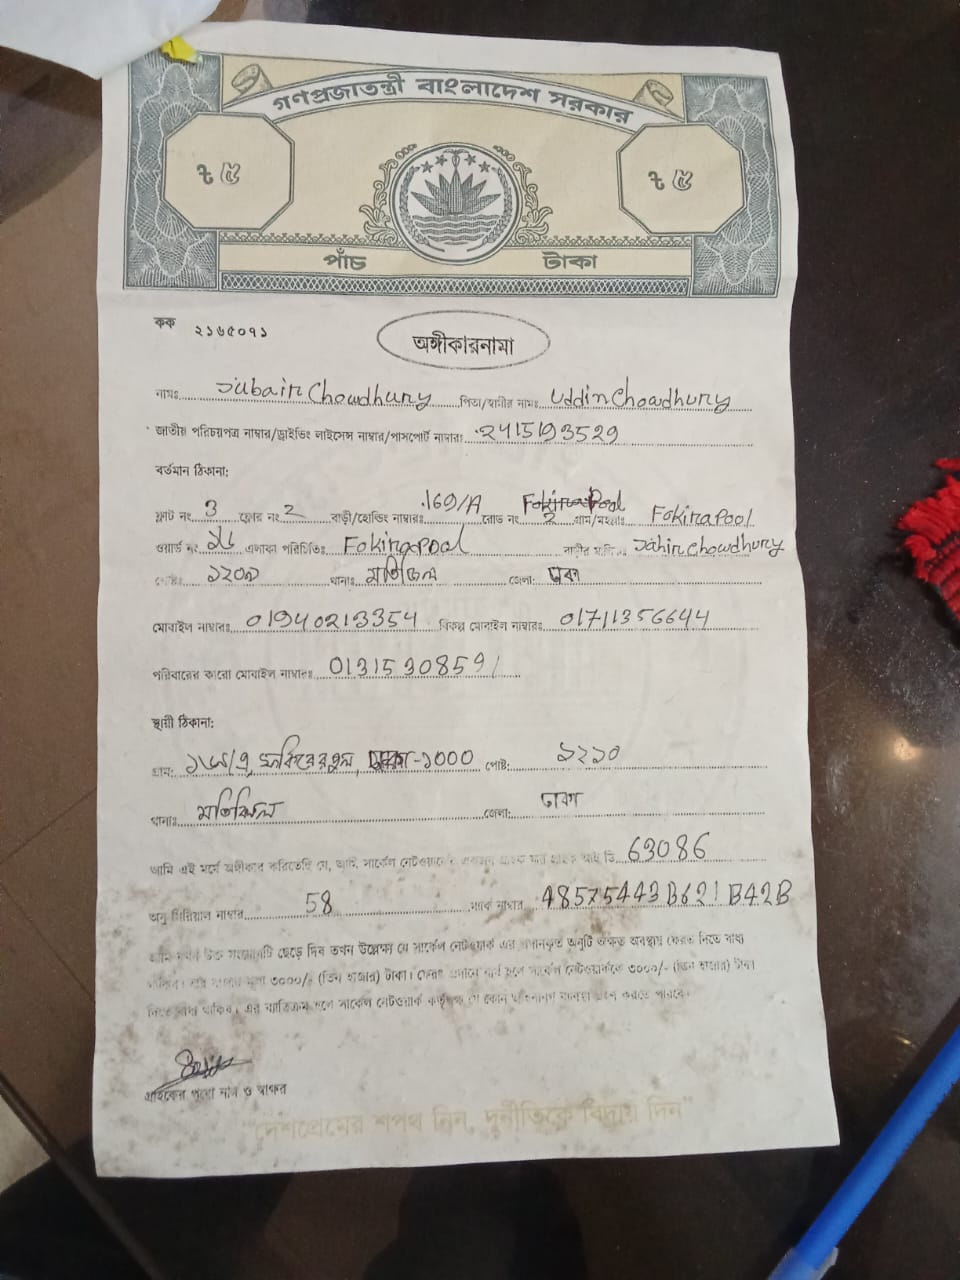 গণপ্রজাতন্ত্রী বাংলাদেশ সরকার
৳ ৫ ৳ ৫
পাঁচ টাকা
কক ২১৬৫০৭১
অঙ্গীকারনামা
নামঃ Jubair Chowdhury পিতা/স্বামীর নামঃ Uddin Chowdhury
জাতীয় পরিচয়পত্র নাম্বার/ড্রাইভিং লাইসেন্স নাম্বার/পাসপোর্ট নাম্বারঃ 2415193529
বর্তমান ঠিকানা:
ফ্লাট নং 3 ফ্লোর নং 2 বাড়ী/হোল্ডিং নাম্বারঃ 169/A রোড নং 2 গ্রাম/মহল্লাঃ Fokirapool
ওয়ার্ড নং এলাকা পরিচিতিঃ Fokirapool Jahir Chowdhury
১২০৯ থানাঃ মতিঝিল জেলা: ঢাকা
মোবাইল নাম্বারঃ 01940213354 বিকল্প মোবাইল নাম্বারঃ 01711356644
পরিবারের কারো মোবাইল নাম্বারঃ 01315308591
স্থায়ী ঠিকানা:
গ্রাম: ফকিরেরপুল, ঢাকা-১000 পোষ্ট: ১২১০
থানাঃ মতিঝিল জেলা: ঢাকা
আমি এই মর্মে অঙ্গীকার করিতেছি যে, আমি, সার্কেল নেটওয়ার্ক আই ডি 63086
অনু সিরিয়াল নাম্বার 58 ম্যাক নাম্বার 48575443B621B42B
সংযোগটি ছেড়ে দিব তখন উল্লেক্ষ যে সার্কেল নেটওয়ার্ক এর প্রদানকৃত অনুটি অক্ষত অবস্থায় ফেরত দিতে বাধ্য
৩০০০/- (তিন হাজার) টাকা। ফেরৎ প্রদানে ব্যর্থ হলে সার্কেল নেটওয়ার্ককে ৩০০০/- (তিন হাজার) টাকা
দিতে বাধ্য থাকিব। এর ব্যতিক্রম হলে সার্কেল নেটওয়ার্ক কর্তৃপক্ষ যে কোন করতে পারবে।
গ্রাহকের পুরো নাম ও স্বাক্ষর
"দেশপ্রেমের শপথ নিন, দুর্নীতিকে বিদায় দিন"